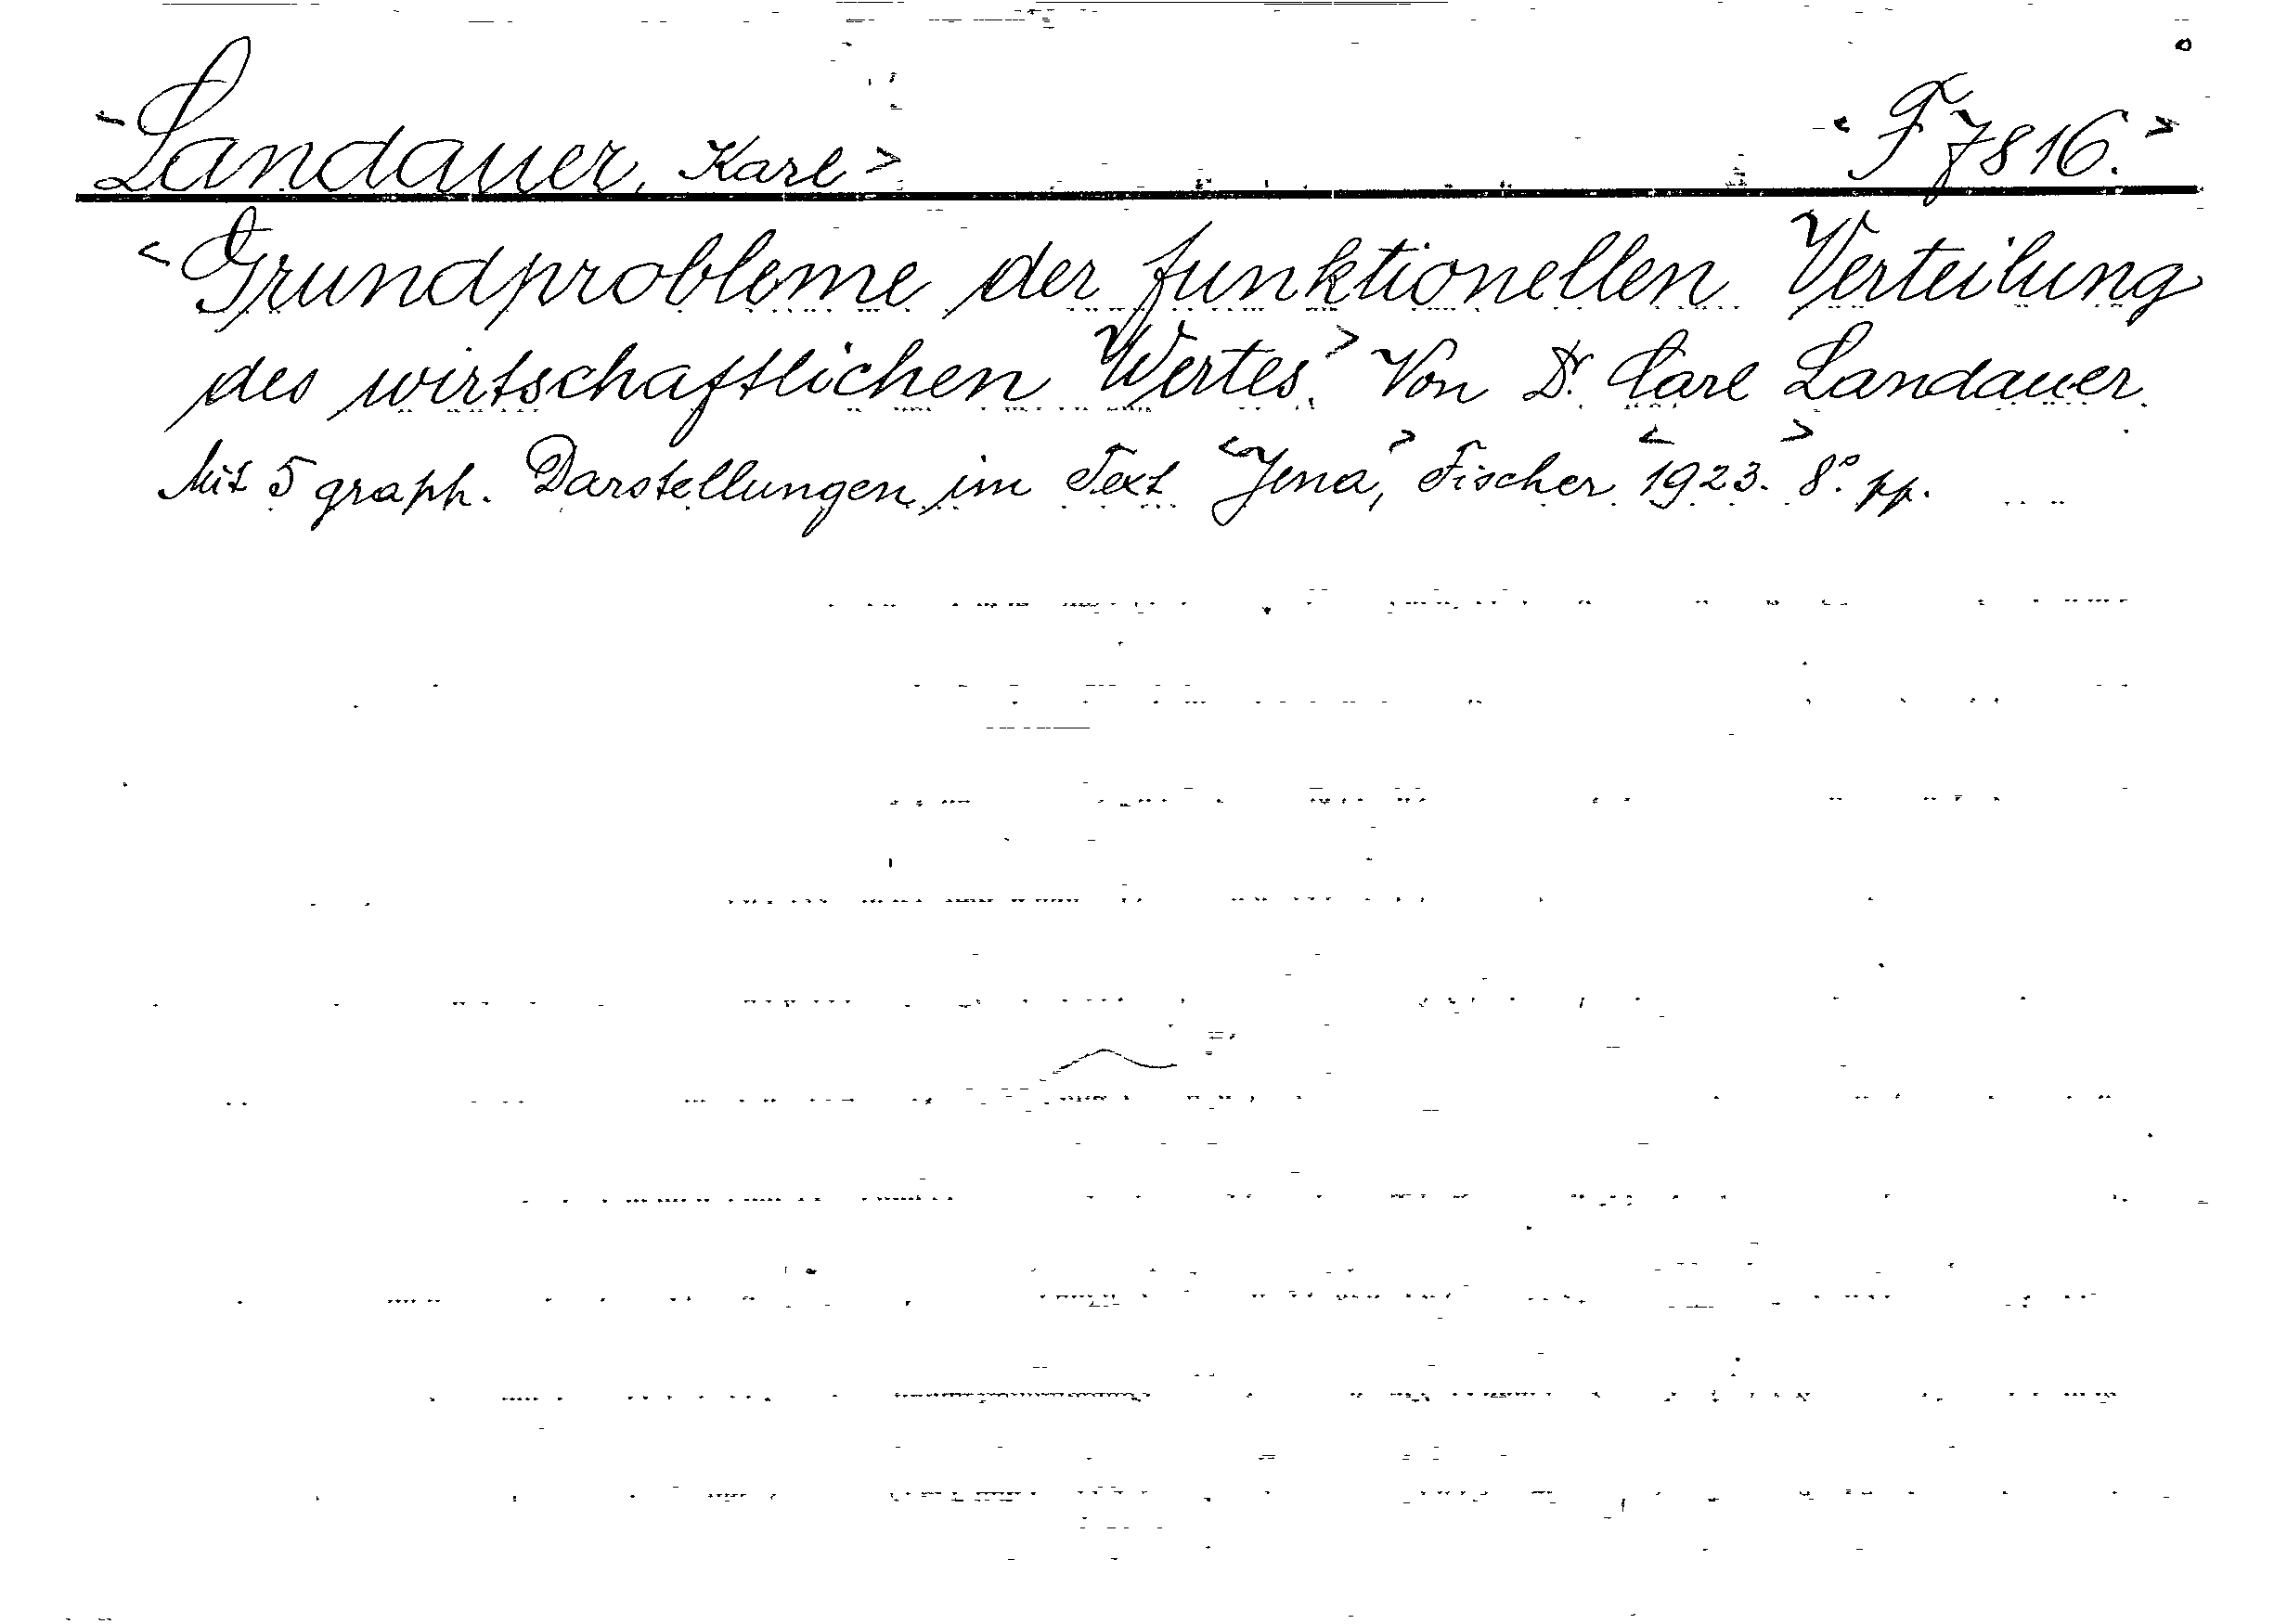 <Landauer, Karl> <F 7816.>
<Grundprobleme der funktionellen Verteilung
des wirtschaftlichen Wertes.> Von Dr. Carl Landauer.
Mit 5 graph. Darstellungen im Text <Jena,> Fischer <1923.> 8º. pp.